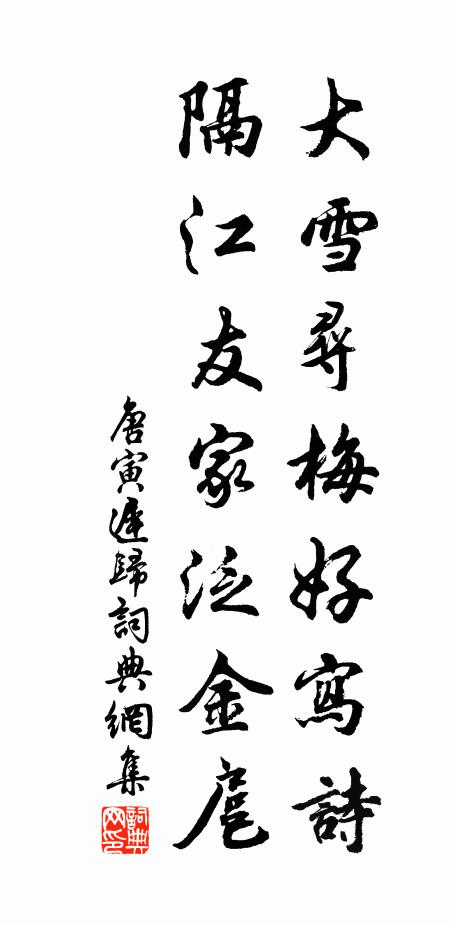 大雪尋梅好寫詩
隔江友家泛金巵
唐寅遲歸詞典網集
詞典網印